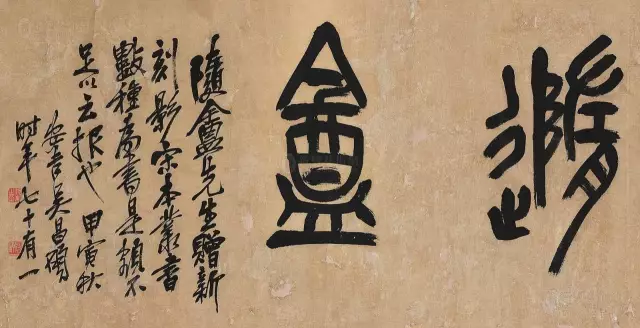 随盦
随盦先生贈新
刻影宋本叢書
數種為書是額不
足以云報也 甲寅秋
安吉吳昌碩
時年七十有一